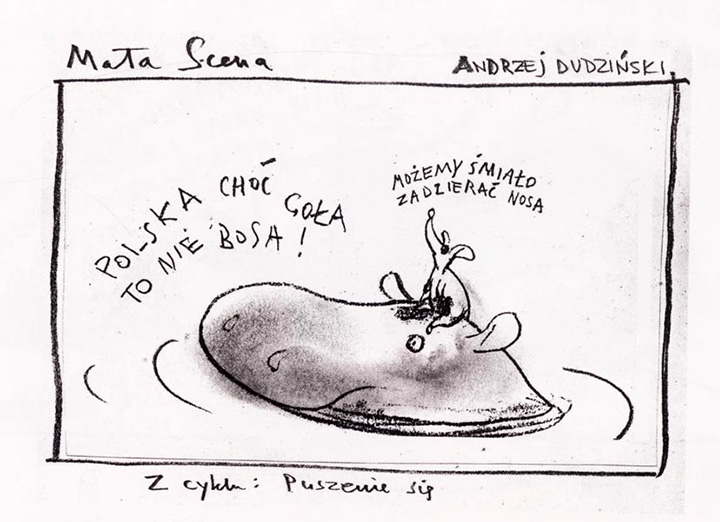 Mała Scena
ANDRZEJ DUDZIŃSKI
POLSKA CHOĆ GOŁA
TO NIE BOSA!
MOŻEMY ŚMIAŁO
ZADZIERAĆ NOSA
Z cyklu: Puszenie się